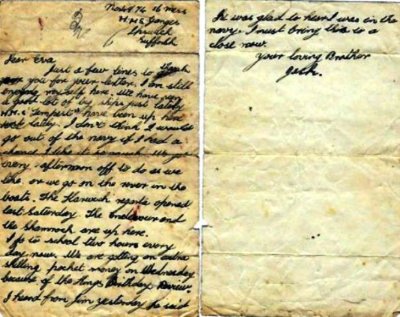 No 16 Mess
H.M.S. Ganges
Ipswich
Suffolk
Dear Eva
Just a few lines to thank
you for your letter. I am still
enjoying my self here. We have seen
a good lot of big ships just lately
have been up here
just lately. I don't think I would
go out of the navy if I had a
chance. I like it
every afternoon off to do as we
like. or we go on the river in the
boats. The Harwich regatta opened
last Saturday. The Endeavour and
the Shamrock are up here.
I go to school two hours every
day now. We are getting an extra
shilling pocket money on Wednesday
because of the Kings Birthday Review.
I heard from Jim yesterday he said
he was glad to hear I was in the
navy. I must bring this to a
close now.
your loving Brother
Jack.